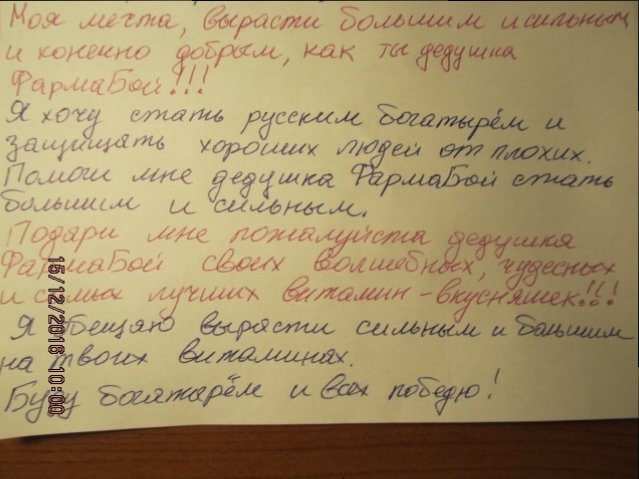 Моя мечта, вырасти большим и сильным
и конечно добрым, как ты дедушка
ФармаБой!!!
Я хочу стать русским богатырём и
защищать хороших людей от плохих.
Помоги мне дедушка ФармаБой стать
большим и сильным.
Подари мне пожалуйста дедушка
ФармаБой своих волшебных, чудесных
и самых лучших витамин - вкусняшек!!!
Я обещаю вырасти сильным и большим
на твоих витаминах.
Буду богатырём и всех победю!
15/12/2016 10:00